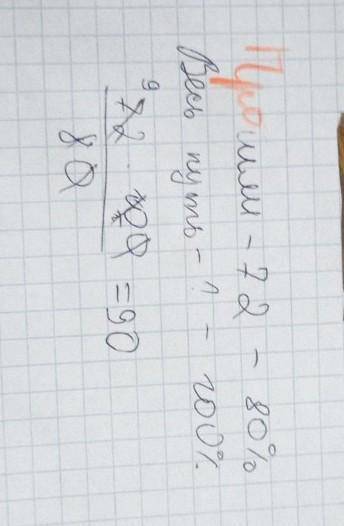 Прошли - 72 - 80%
Весь путь - ? - 100%
72 · 100 = 90
80
9